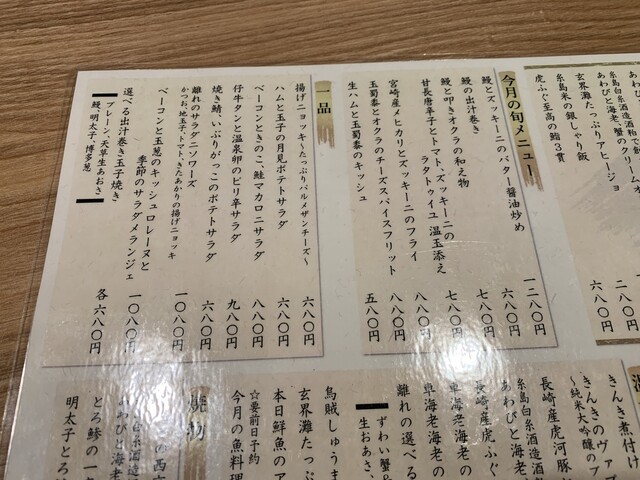 糸島米の銀しゃり飯
虎ふぐ至高の鮨3貫
二八〇円
六八〇円
今月の旬メニュー
鰻とズッキーニのバター醤油炒め 一二八〇円
鰻の出汁巻き 六八〇円
鰻と叩きオクラの和え物 七八〇円
甘長唐辛子とトマト、ズッキーニの
ラタトゥイユ 温玉添え 七八〇円
宮崎産メヒカリとズッキーニのフライ 八八〇円
玉蜀黍とオクラのチーズスパイスフリット 八八〇円
生ハムと玉蜀黍のキッシュ 五八〇円
一品
揚げニョッキ〜たっぷりパルメザンチーズ〜 六八〇円
ハムと玉子の月見ポテトサラダ 六八〇円
ベーコンときのこ、鮭マカロニサラダ 八八〇円
仔牛タンと温泉卵のピリ辛サラダ 九八〇円
焼き鯖、いぶりがっこのポテトサラダ 六八〇円
離れのサラダニソワーズ
かつお、地玉子、トマト、きたあかりの揚げニョッキ 一〇八〇円
ベーコンと玉葱のキッシュロレーヌと
季節のサラダメランジェ 一〇八〇円
選べる出汁巻き玉子焼き 各六八〇円
プレーン、天草生あおさ、
鰻、明太子、博多葱
きんき煮付け
きんきのヴァ
〜純米大吟醸のア
長崎産虎河豚
糸島白糸酒造酒
あわびと海老
長崎産虎ふぐ
車海老海老の
車海老海老の
離れの選べる
ずわい蟹
生おあさ、
烏賊しゅうま
玄界灘たっぷ
本日鮮魚のア
☆要前日予約
今月の魚料理
焼物
の西京
あわびと海老
とろ鯵の一
明太子とろ